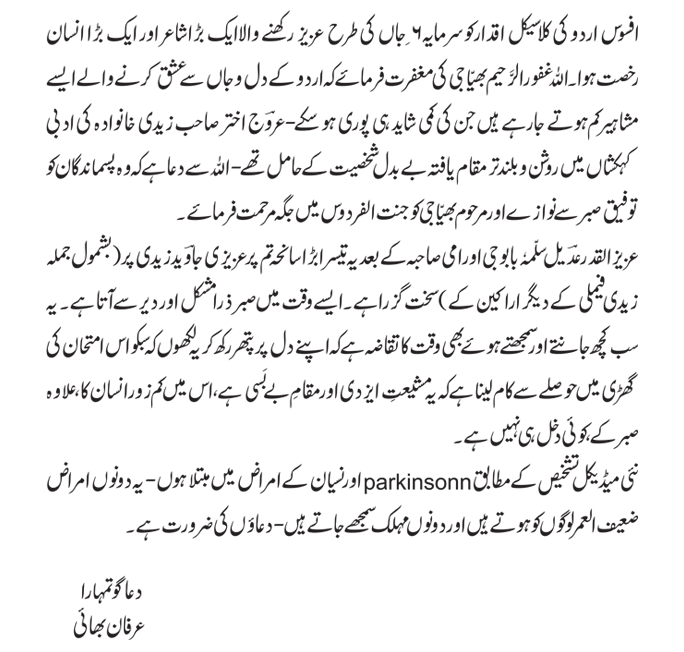 افسوس اردو کی کلاسیکل اقدار کو سرمایہ٦ِ جاں کی طرح عزیز رکھنے والا ایک بڑا شاعر اور ایک بڑا انسان
رخصت ہوا۔اللہ غفور الرَّحیم بھیّا جی کی مغفرت فرمائے کہ اردو کے دل و جاں سے عشق کرنے والے ایسے
مشاہیر کم ہوتے جا رہے ہیں جن کی کمی شاید ہی پوری ہو سکے-عروؔج اختر صاحب زیدی خانوادہ کی ادبی
کہکشاں میں روشن و بلند تر مقام یافتہ بے بدل شخصیت کے حامل تھے-اللہ سے دعا ہے کہ وہ پسماندگان کو
توفیق صبر سے نوازے اور مرحوم بھیّا جی کو جنت الفردوس میں جگہ مرحمت فرمائے۔
عزیز القدر عدؔیل سلّمہٗ بابو جی اور امی صاحبہ کے بعد یہ تیسرا بڑا سانحہ تم پر عزیزی جاوؔید زیدی پر(بشمول جملہ
زیدی فیملی کے دیگر اراکین کے)سخت گزرا ہے۔ایسے وقت میں صبر ذرا مشکل اور دیر سے آتا ہے۔یہ
سب کچھ جانتے اور سمجھتے ہوئے بھی وقت کا تقاضہ ہے کہ اپنے دل پر پتھر رکھ کر یہ لکھوں کہ سبکو اس امتحان کی
گھڑی میں حوصلے سے کام لینا ہے کہ یہ مشیعتِ ایزدی اور مقامِ بے بَسی ہے،اس میں کم زور انسان کا،علاوہ
صبر کے،کوئی دخل ہی نہیں ہے۔
نئی میڈیکل تشخیص کے مطابق parkinsonn اور نسیان کے امراض میں مبتلا ہوں-یہ دونوں امراض
ضعیف العمر لوگوں کو ہوتے ہیں اور دونوں مہلک سمجھے جاتے ہیں-دعاؤں کی ضرورت ہے۔
دعا گو تمہارا
عرفان بھائی